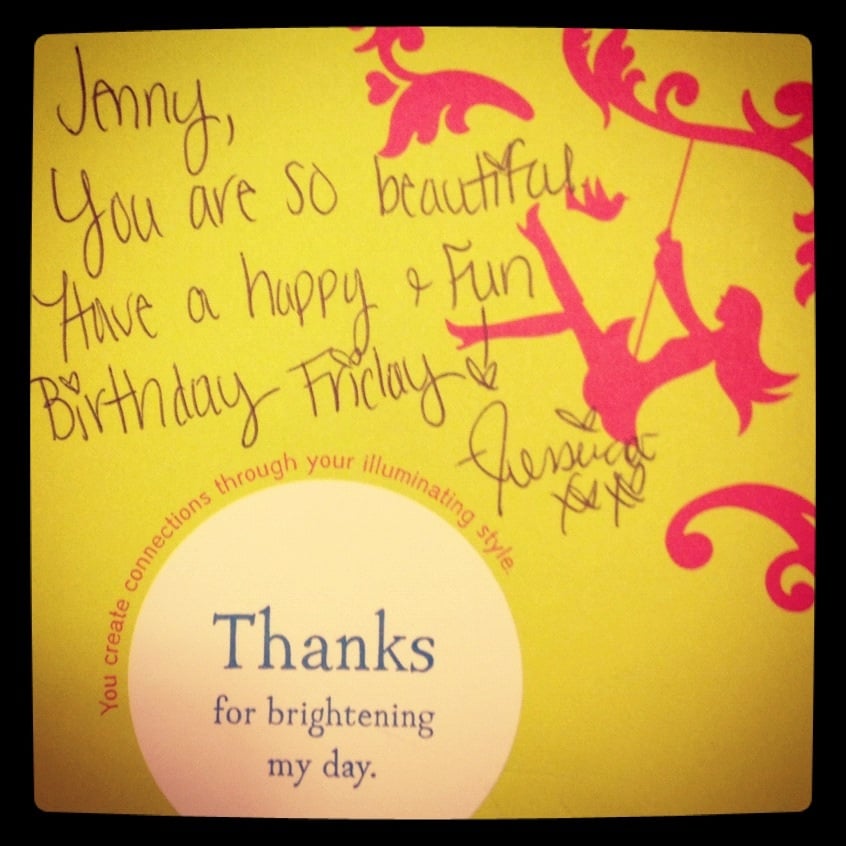 Jenny,
You are so beautiful.
Have a happy & Fun
Birthday Friday
Jessica
xoxo
You create connections through your illuminating style.
Thanks
for brightening
my day.